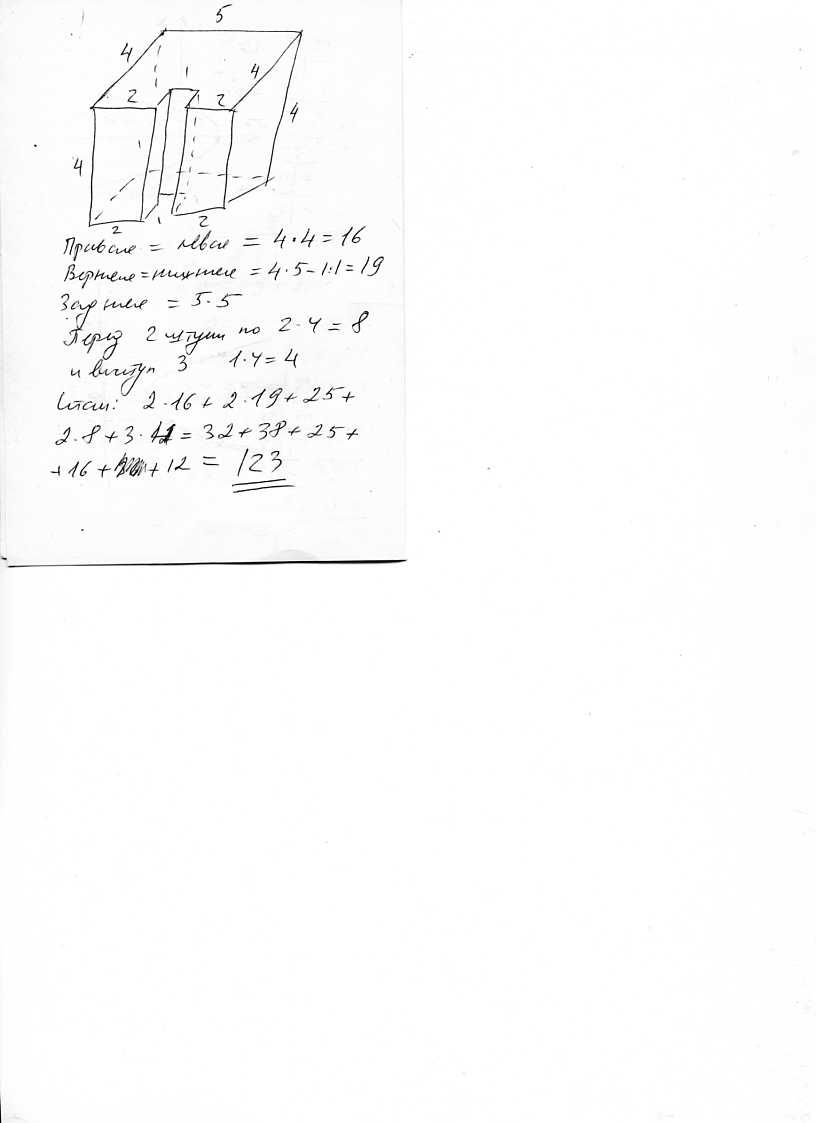 5
4
1
4
2
2
4
4
2
1
2
Правая = левая = 4·4=16
Верхнее=нижнее = 4·5-1·1=19
Заднее = 5·5
Перед 2 штуки по 2·4=8
и выступ 3 1·4=4
Итог: 2·16+2·19+25+
2·8+3·4=32+38+25+
+16+ +12 = 123